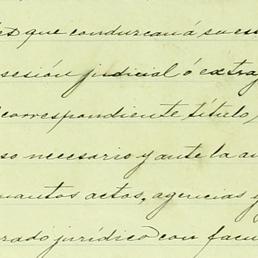 que conduzcan á su es
sesión judicial ó extraj
correspondiente título,
so necesario y ante la au
cuantos actos, agencias y
rado jurídico con facu